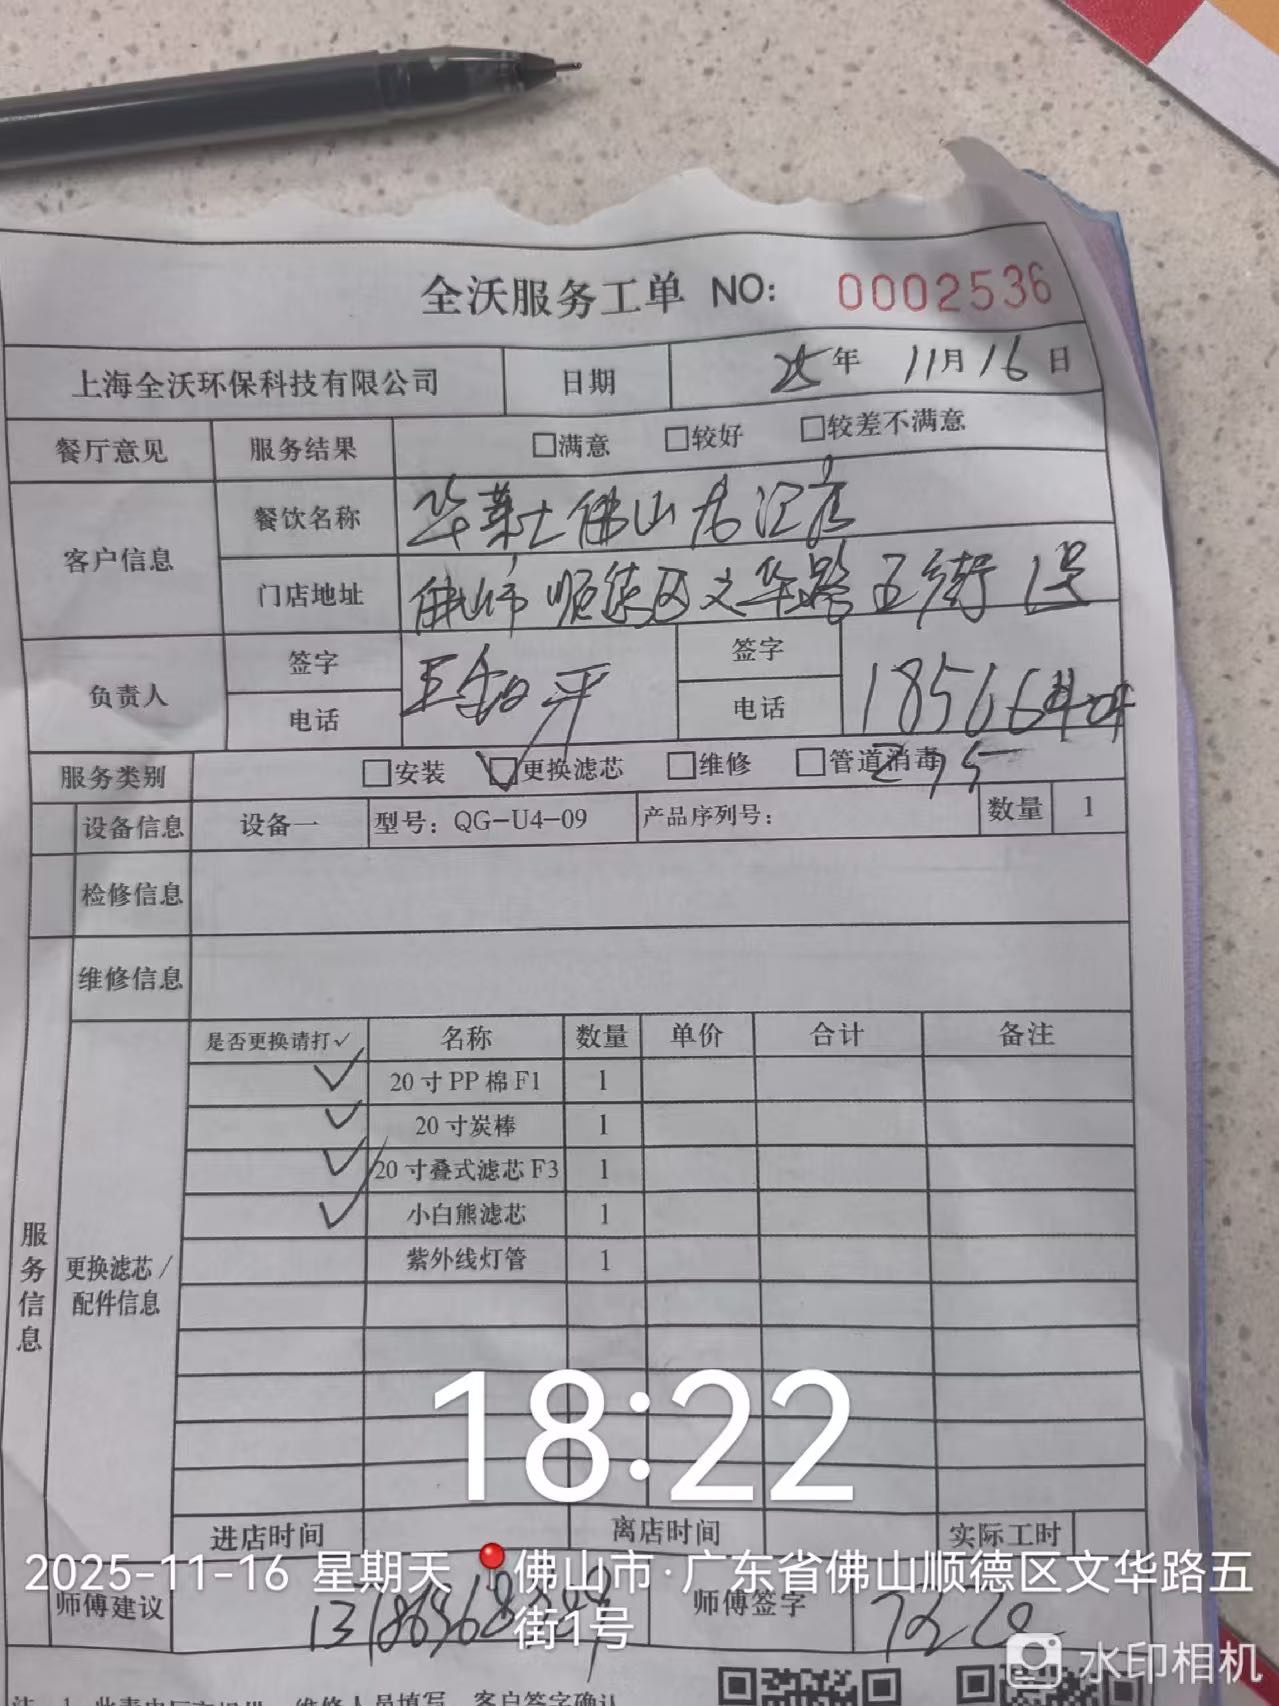 全沃服务工单 NO: 0002536
上海全沃环保科技有限公司 日期 25年 11月16日
餐厅意见 服务结果 □满意 □较好 □较差不满意
客户信息 餐饮名称 华莱士佛山 店
门店地址 佛山市顺德区文华路五街1号
负责人 签字 签字
电话 电话 18566
服务类别 □安装 ✓□更换滤芯 □维修 □管道消毒
设备信息 设备一 型号：QG-U4-09 产品序列号： 数量 1
检修信息
维修信息
服务信息
更换滤芯/配件信息
是否更换请打✓ 名称 数量 单价 合计 备注
✓ 20寸PP棉F1 1
✓ 20寸炭棒 1
✓ 20寸叠式滤芯F3 1
✓ 小白熊滤芯 1
紫外线灯管 1
18:22
进店时间 离店时间 实际工时
2025-11-16 星期天 佛山市·广东省佛山顺德区文华路五街1号
师傅建议 师傅签字
水印相机